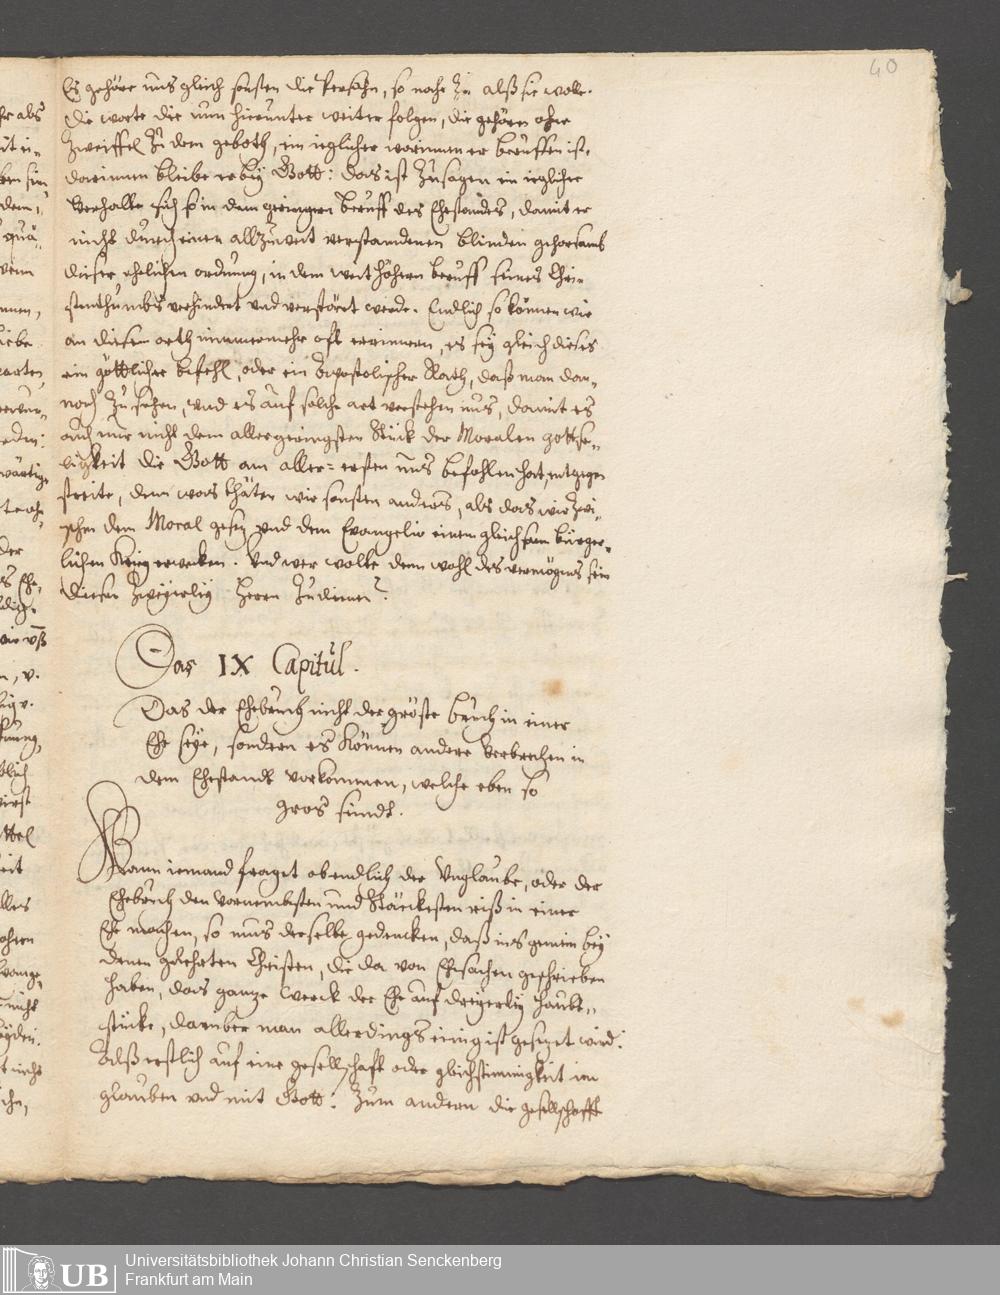 40
Es gehöre uns gleich sonsten die Person, so nahe zu alß sie wolle.
die worte die nun hierunter weiter folgen, die gehören ohne
Zweiffel zu dem geboth, ein ieglicher worinnen er beruffen ist,
darinnen bleibe er bey Gott: das ist zusagen ein ieglicher
verhalte sich so in dem geringern beruff des Ehestandes, damit er
nicht durch einen allzuweit verstandenen blinden gehorsamb
dieser ehelichen ordnung, in dem weit höhern beruff seines Chri-
stenthumbs verhindert und verstört werde. Endlich so können wir
an diesem orth nimmermehr oft erinnern, es sey gleich dieses
ein göttlicher befehl, oder ein Apostolischer Rath, daß man dar-
nach zu sehen, und es auf solche art verstehen mus, damit es
auch nur nicht dem allergeringsten Stück der Moralen gottse-
ligkeit die Gott am aller-ersten uns befohlen hat, entgegen
streite, denn was thäten wir sonsten anders, als das wir zwi-
schen dem Moral gesez und dem Evangelio einen gleichsam bürger-
lichen Krieg erwecken. Und wer wolte denn wohl des vermögens sein
dieser zweyerley Herrn zu dienen?
Das IX Capitul.
Das der Ehebruch nicht der gröste bruch in einer
Ehe seye, sondern es können andere verbrechen in
dem Ehestandt vorkommen, welche eben so
gros sindt.
Wann iemand fraget ob endlich der Unglaube, oder der
Ehebruch den vornembsten und stärckesten riß in einer
Ehe machen, so mus derselbe gedencken, daß ins gemein bey
denen gelehrten Christen, die da von Ehesachen geschrieben
haben, das ganze werck der Ehe auf dreyerley haubt-
stücke, darüber man allerdings einig ist gesezet wird:
Alß erstlich auf eine gesellschaft oder gleichstimmigkeit im
glauben und mit Gott: Zum andern die gesellschafft
Universitätsbibliothek Johann Christian Senckenberg
Frankfurt am Main
UB